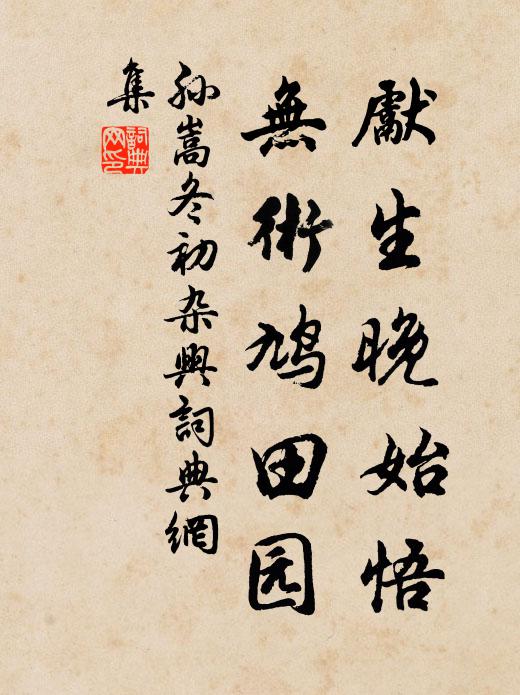 獻生晚始悟
無術鳩田园
孙嵩冬初杂興詞典網
集
詞典网印